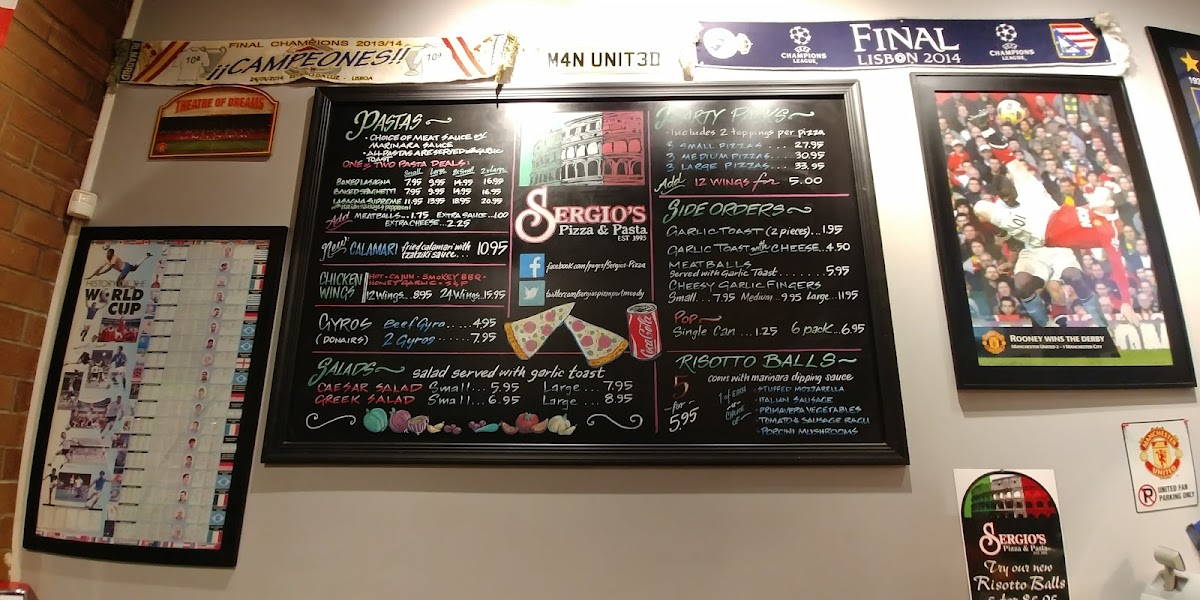 FINAL CHAMPIONS 2013/14
10ª ¡¡CAMPEONES!! 10ª
LISBOA
M4N UNIT3D
CHAMPIONS LEAGUE
FINAL
LISBON 2014
CHAMPIONS LEAGUE
THEATRE OF DREAMS
HISTORY OF THE
WORLD CUP
PASTAS
• CHOICE OF MEAT SAUCE OR
MARINARA SAUCE
• ALL PASTAS ARE SERVED WITH GARLIC
TOAST
ONE & TWO PASTA DEALS:
Small Large 2xSmall 2xLarge
BAKED LASAGNA 7.95 9.95 14.95 16.95
BAKED SPAGHETTI 7.95 9.95 14.95 16.95
LASAGNA SUPREME 11.95 13.95 18.95 20.95
Add MEATBALLS...1.75 EXTRA SAUCE...1.00
EXTRA CHEESE...2.25
New CALAMARI fried calamari with
tzatziki sauce... 10.95
CHICKEN WINGS
HOT • CAJUN • SMOKEY BBQ •
HONEY GARLIC • S&P
12 Wings... 8.95 24 Wings..15.95
GYROS Beef Gyro.....4.95
(DONAIRS) 2 Gyros......7.95
SALADS salad served with garlic toast
CAESAR SALAD Small...5.95 Large...7.95
GREEK SALAD Small...6.95 Large...8.95
SERGIO'S
Pizza & Pasta
EST 1993
facebook.com/pages/Sergios-Pizza
twitter.com/sergiospizzaportmoody
Coca-Cola
PARTY PACKS
• Includes 2 toppings per pizza
3 SMALL PIZZAS... 27.95
3 MEDIUM PIZZAS... 30.95
3 LARGE PIZZAS... 33.95
Add 12 WINGS for 5.00
SIDE ORDERS
GARLIC TOAST (2 pieces)...1.95
GARLIC TOAST with CHEESE..4.50
MEATBALLS
Served with Garlic Toast.......5.95
CHEESY GARLIC FINGERS
Small...7.95 Medium..9.95 Large..11.95
POP
Single Can...1.25 6 pack...6.95
RISOTTO BALLS
5 for 5.95
comes with marinara dipping sauce
1 of EACH or CHOICE OF
• STUFFED MOZZARELLA
• ITALIAN SAUSAGE
• PRIMAVERA VEGETABLES
• TOMATO & SAUSAGE RAGU
• PORCINI MUSHROOMS
ROONEY WINS THE DERBY
MANCHESTER UNITED 2 - 1 MANCHESTER CITY
MANCHESTER
UNITED
P UNITED FAN
PARKING ONLY
SERGIO'S
Pizza & Pasta
Try our new
Risotto Balls